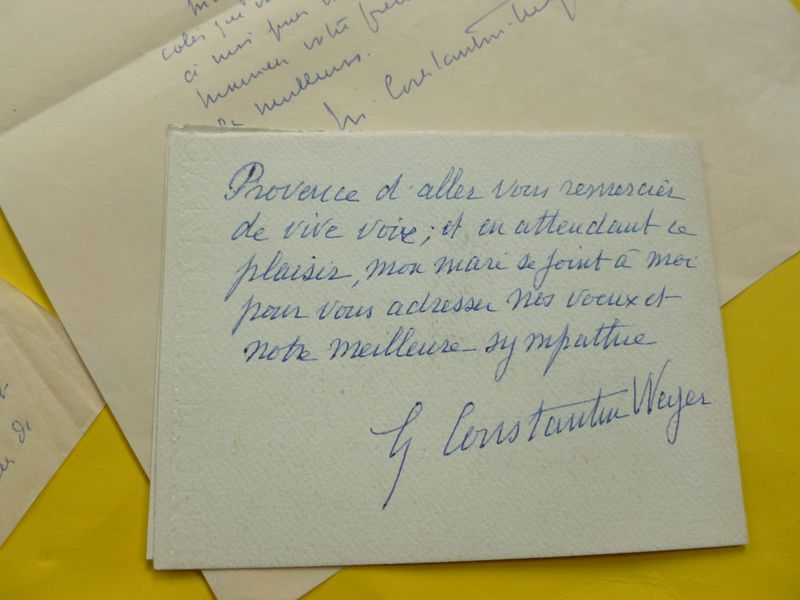 colis que
ci
votre
Constantin-Weyer
Provence d'aller vous remercier
de vive voix; et en attendant ce
plaisir, mon mari se joint à moi
pour vous adresser nos voeux et
notre meilleure sympathie
G Constantin Weyer